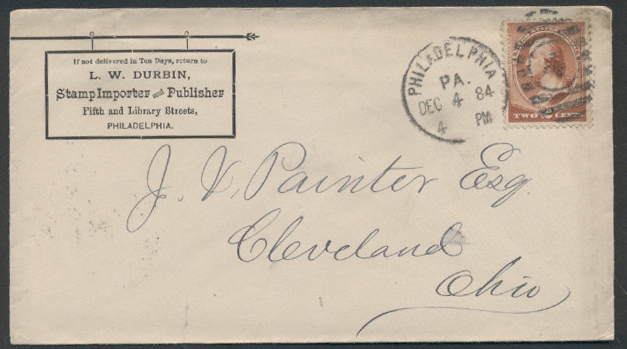 If not delivered in Ten Days, return to
L. W. DURBIN,
Stamp Importer and Publisher
Fifth and Library Streets,
PHILADELPHIA.
PHILADELPHIA
PA.
DEC 4 84
4 PM
TWO CENTS
J. V. Painter Esq.
Cleveland
Ohio